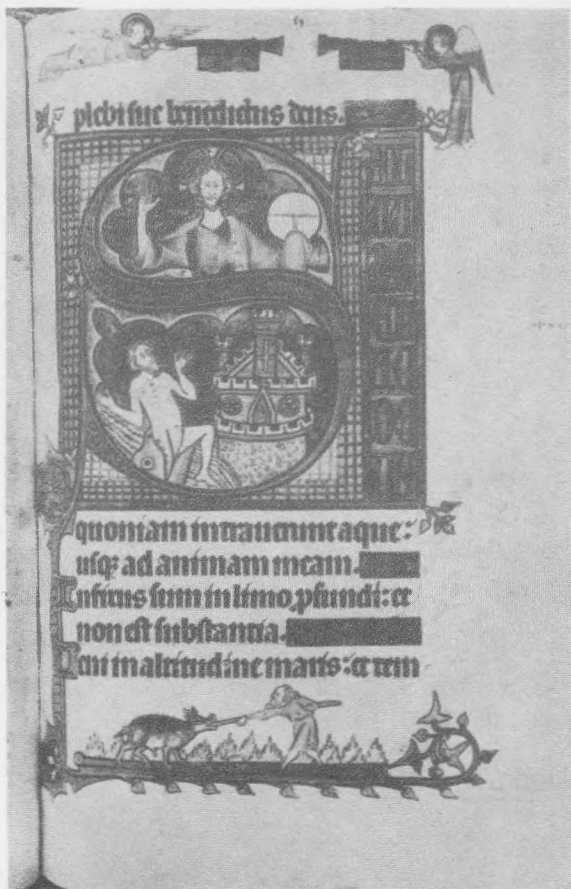 plebi sue benedictus deus.
S
quoniam intrauerunt aque:
usqꝫ ad animam meam.
Infixus sum in limo ꝓfundi: et
non est substantia.
Veni in altitudine maris: et tem